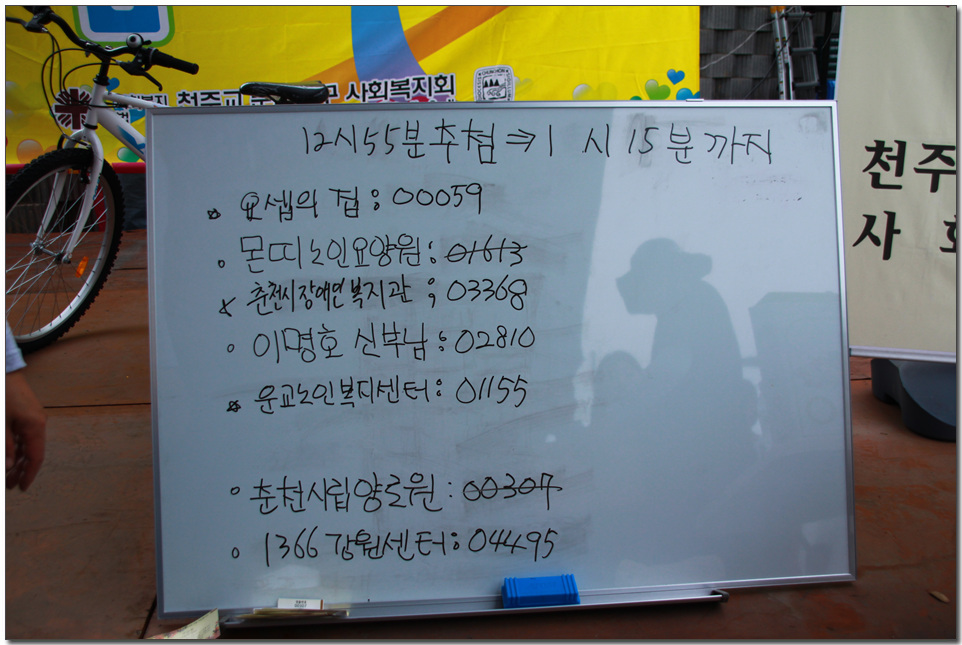 천주교
사회복지회
12시55분추첨⇒1 시 15분까지
요셉의 집: 00059
몬띠노인요양원: 01613
춘천시장애인복지관 ; 03368
이명호 신부님: 02810
운교노인복지센터: 01155
춘천시립양로원: 00307
1366강원센터: 04495
천주
사 회